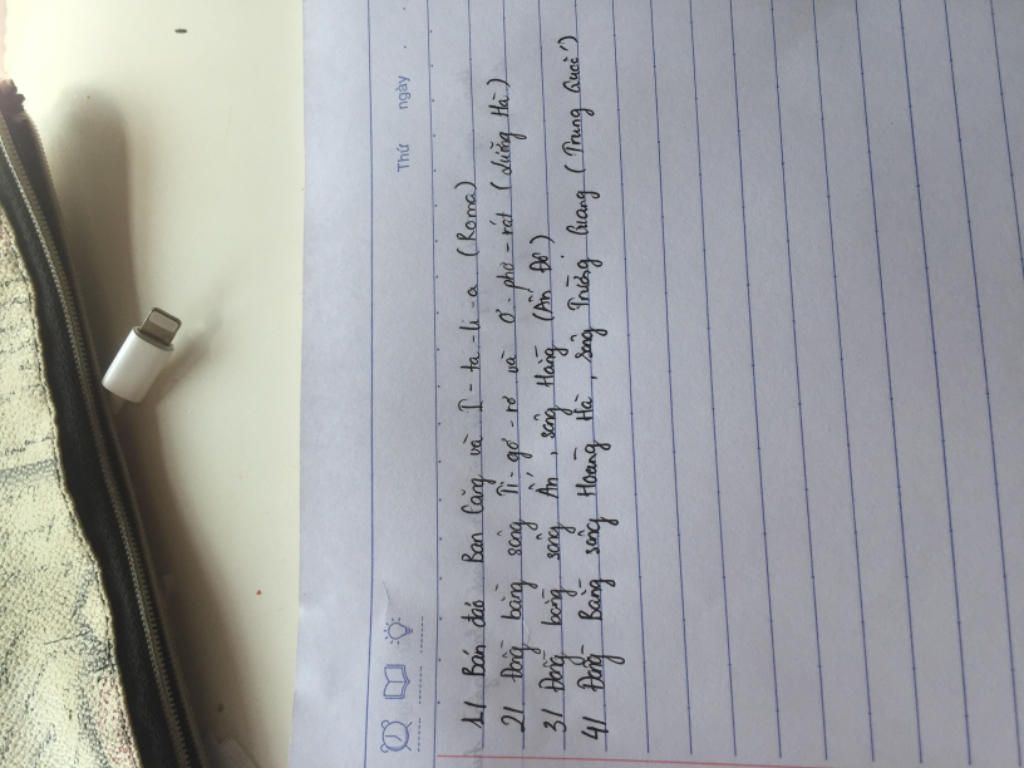 Thứ ngày
1/ Bán đảo Ban Căng và I-ta-li-a (Roma)
2/ Đồng bằng sông Ti-gơ-rơ và Ơ-phơ-rát (Lưỡng Hà)
3/ Đồng bằng sông Ấn, sông Hằng (Ấn Độ)
4/ Đồng Bằng sông Hoàng Hà, sông Trường Giang (Trung Quốc)